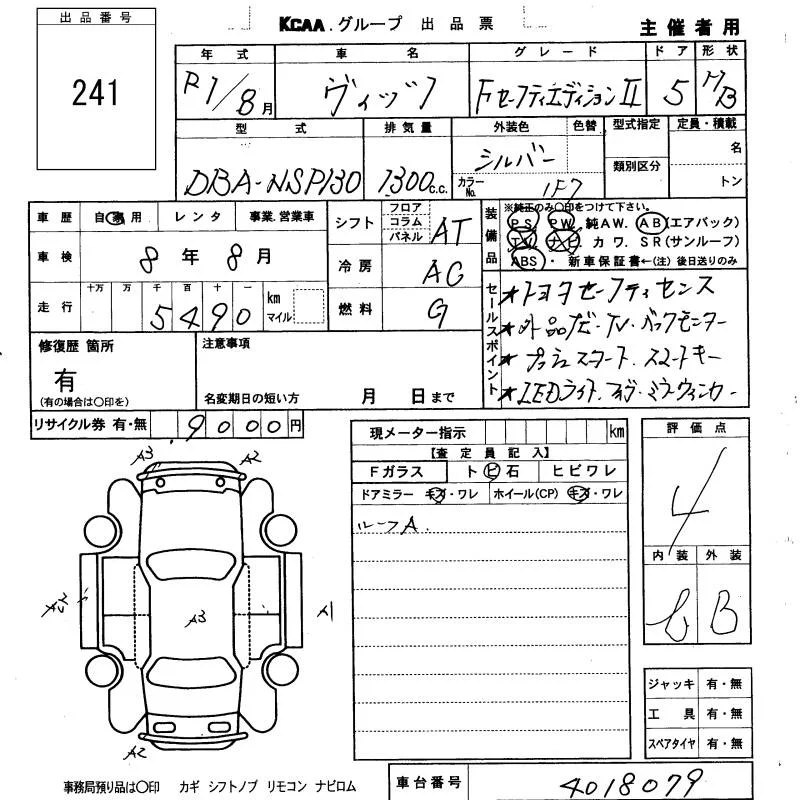 出品番号
241
KCAA.グループ 出品票
主催者用
年式 車名 グレード ドア 形状
R1/8月 ヴィッツ Fセーフティエディション II 5 HB
型式 排気量 外装色 色替 型式指定 定員・積載
DBA-NSP130 1300c.c. シルバー
カラーNo. 1F7
類別区分
名
トン
車歴 自家用 レンタ 事業.営業車
車検 8年8月
走行 十万 万 千 百 十 一
5490 km マイル
シフト フロア コラム パネル AT
冷房 AC
燃料 G
装備品
※純正のみ○印をつけて下さい。
PS PW 純AW. AB(エアバック)
TV ナビ カワ. SR(サンルーフ)
ABS・新車保証書←(注)後日送りのみ
セールスポイント
★トヨタセーフティセンス
★外品ナビ・TV・バックモニター
★プッシュスタート.スマートキー
★LEDライト.フォグ・ミラーウィンカー
修復歴 箇所
有
(有の場合は○印を)
注意事項
名変期日の短い方 月 日まで
リサイクル券 有・無 9000円
現メーター指示 km
【査定員記入】
Fガラス トビ石 ヒビワレ
ドアミラー キズ・ワレ ホイール(CP) キズ・ワレ
ルーフA.
評価点
4
内装 外装
B
A3 A2
A3
A1
A2
ジャッキ 有・無
工具 有・無
スペアタイヤ 有・無
事務局預り品は○印 カギ シフトノブ リモコン ナビロム
車台番号 4018079